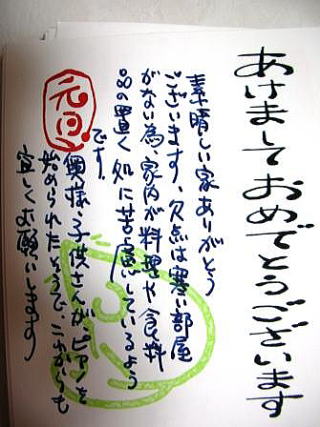 あけましておめでとうございます
素晴しい家ありがとう
ございます、欠点は寒い部屋
がない為、家内が料理や食料
品の置く処に苦慮しているよう
です。
奥様、子供さんがピアノを
始められたそうで、これからも
宜しくお願いします
元旦